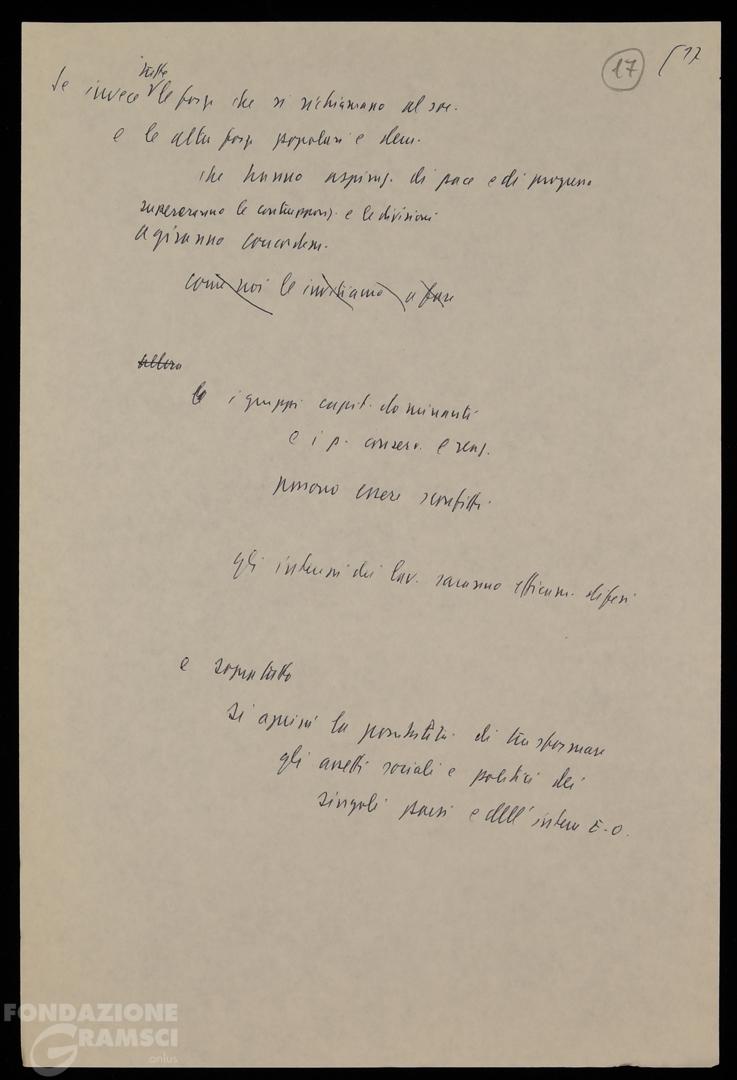 17
17
tutte
Se invece le forze che si richiamano al soc.
e le altre forze popolari e dem.
che hanno aspiraz. di pace e di progresso
supereranno le contrapposiz. e le divisioni
agiranno concordem.
come noi le invitiamo a fare
allora
i gruppi capit. dominanti
e i p. conserv. e reaz.
possono essere sconfitti.
gli interessi dei lav. saranno efficacem. difesi
e soprattutto
si aprirà la possibilità di trasformare
gli assetti sociali e politici dei
singoli paesi e dell'intera E.O.
FONDAZIONE
GRAMSCI
onlus